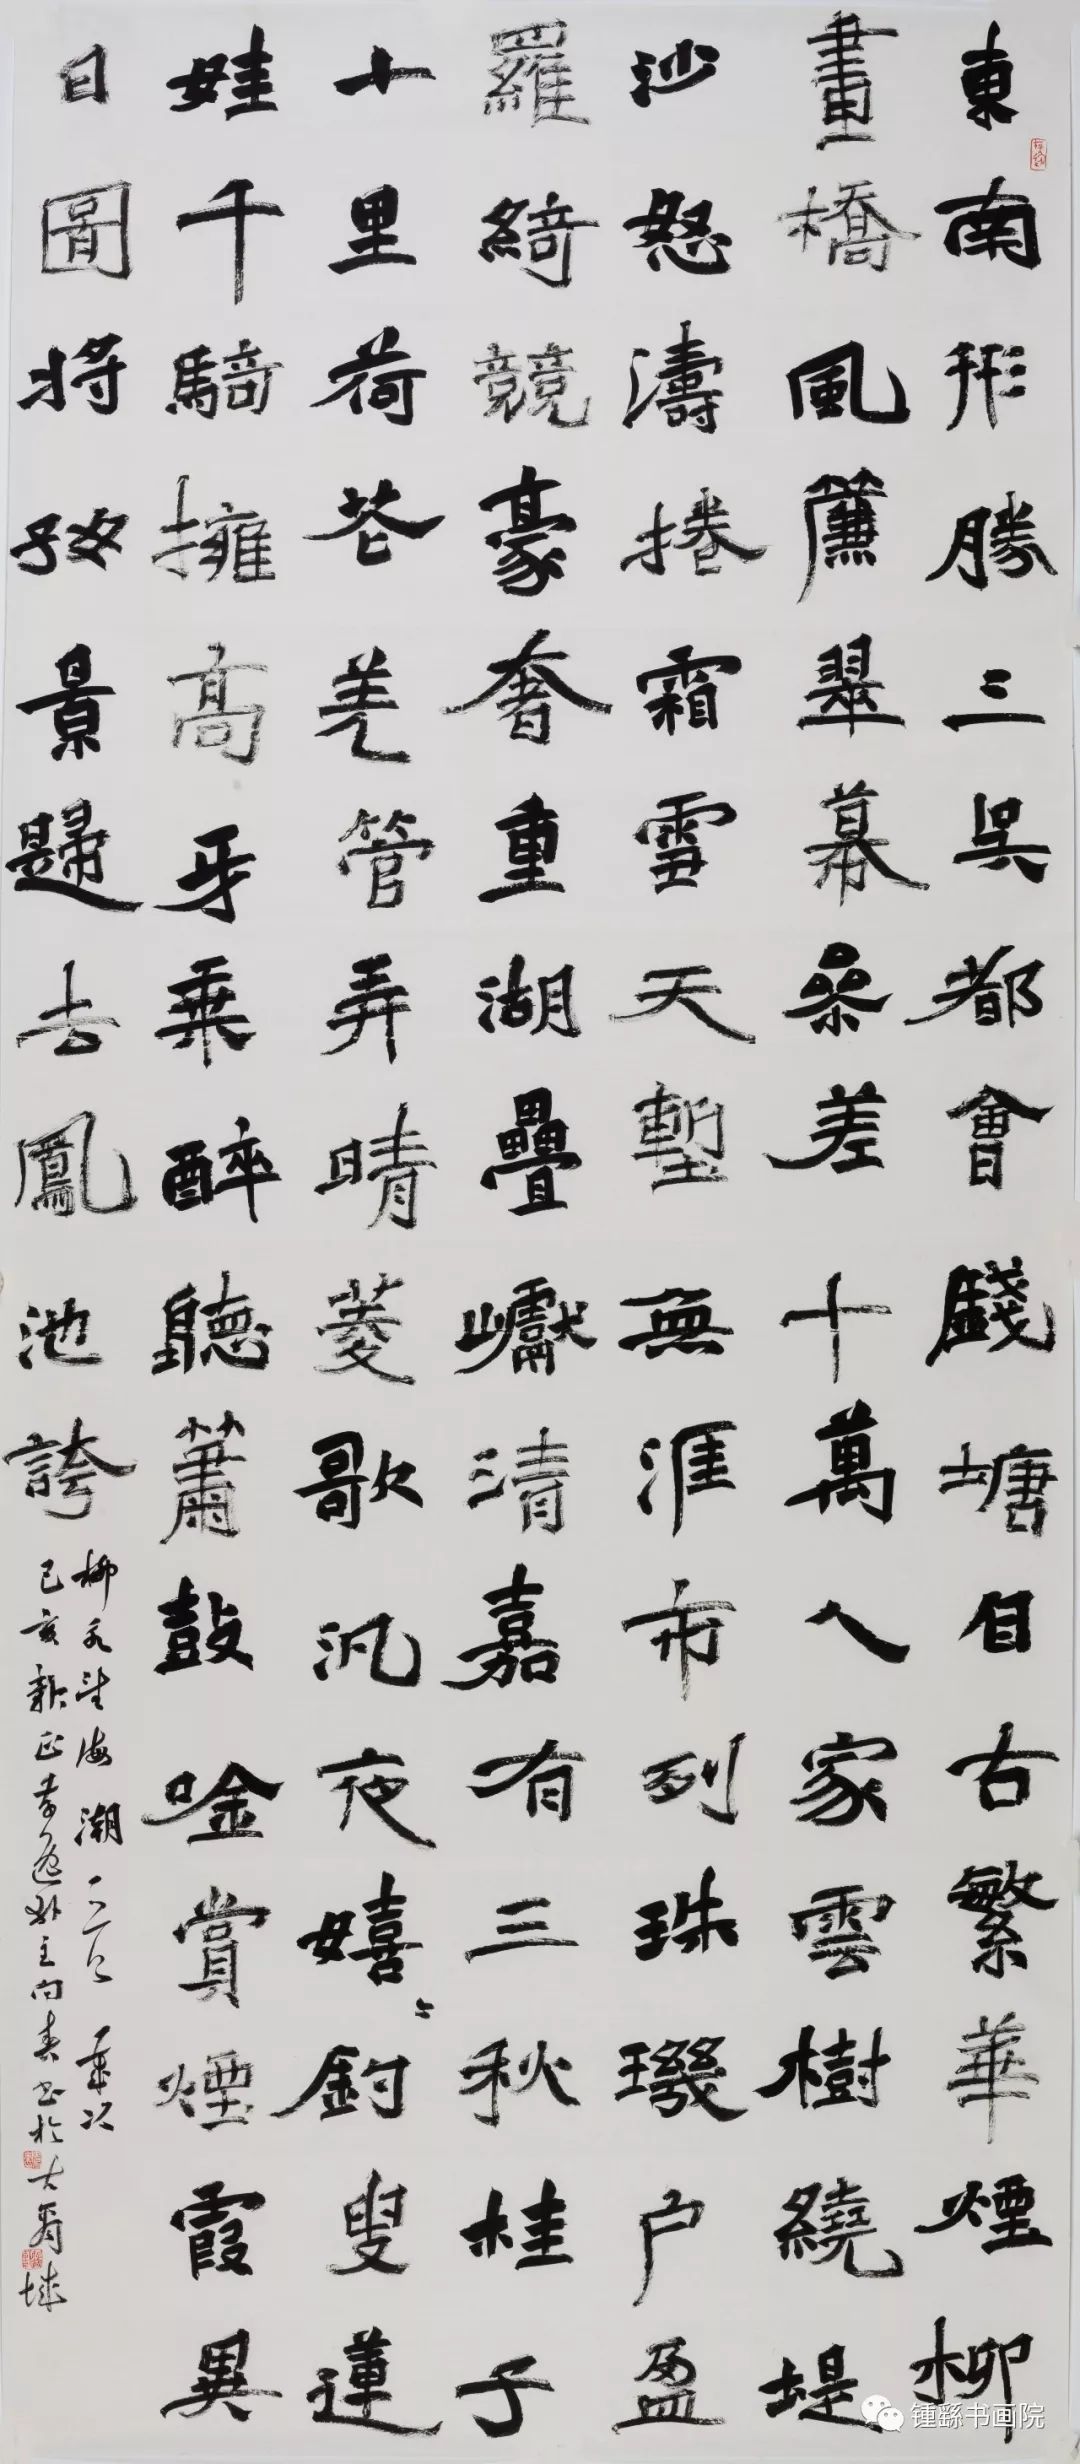 東南形勝三吳都會錢塘自古繁華煙柳
畫橋風簾翠幕參差十萬人家雲樹繞堤
沙怒濤捲霜雪天塹無涯市列珠璣户盈
羅綺競豪奢重湖疊巘清嘉有三秋桂子
十里荷花羌管弄晴菱歌汎夜嬉々釣叟蓮
娃千騎擁高牙乘醉聽簫鼓唫賞煙霞異
日圖將好景歸去鳳池誇
柳永望海潮
己亥新正
锺繇书画院